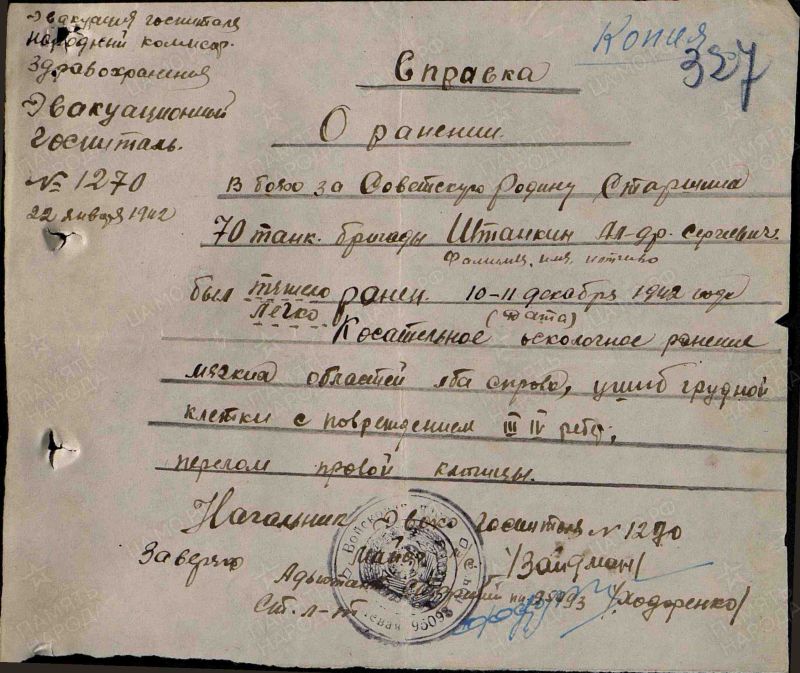 Эвакуация госпиталя
народный комисар.
здравохранения
Эвакуационный
Госпиталь.
№ 1270
22 января 1942
Копия
327
Справка
О ранении.
В боях за Советскую Родину Старшина
70 танк. бригады Шталкин Ал-др. Сергеевич.
Фамилия, имя, отчество
был тяжело ранен. 10-11 декабря 1942 года
легко (дата)
Косательное осколочное ранение
мягких областей лба справа, ушиб грудной
клетки с повреждением III IV ребр,
перелом правой ключицы.
Начальник Эвако госпиталя № 1270
Майор /Зайдман/
Заверяю
Адъютант
Ст. л-нт /Ходоренко/
Войсковая
полевая 95098